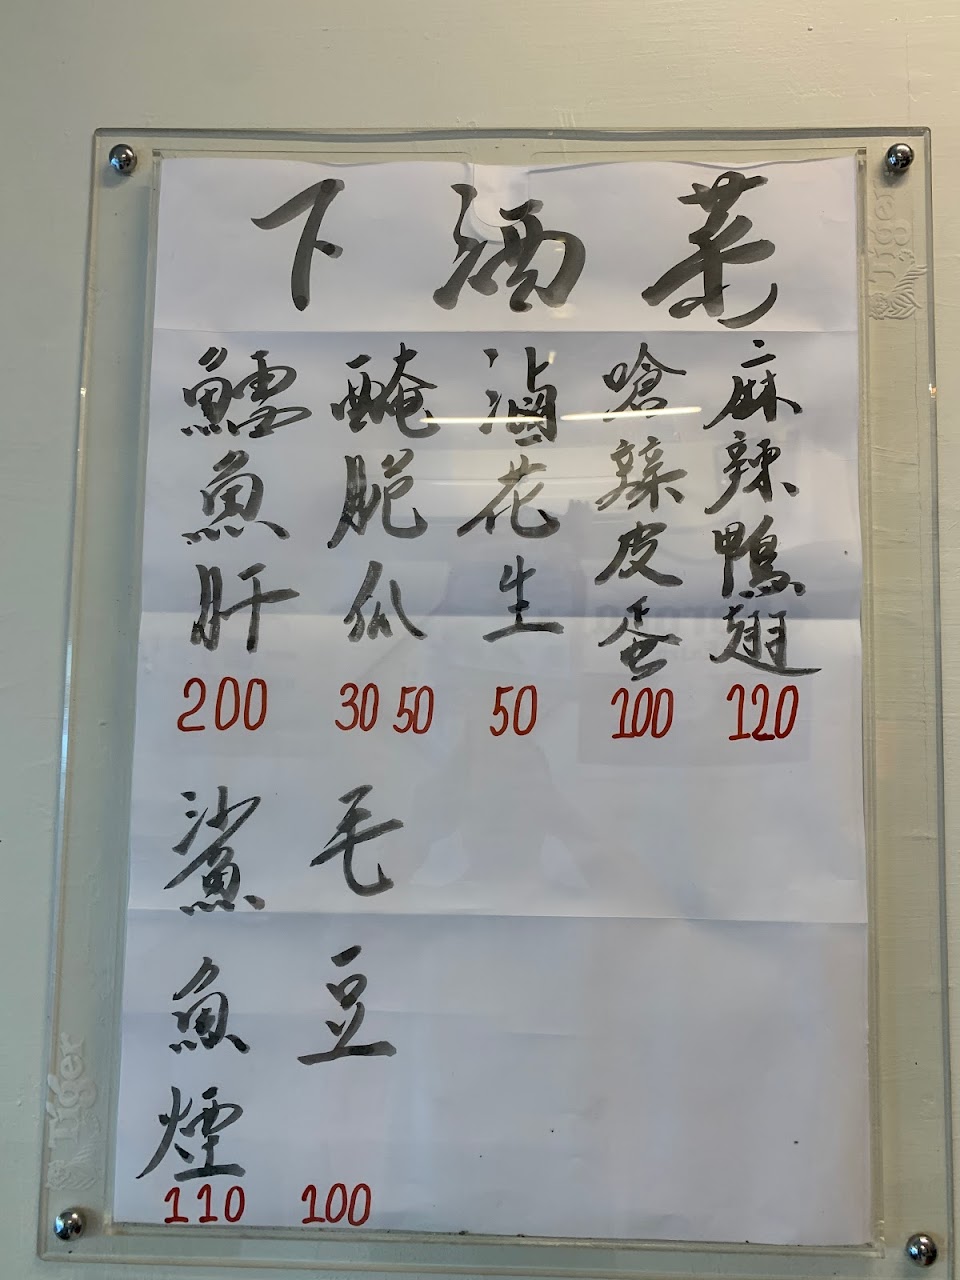 下酒菜
麻辣鴨翅
120
嗆辣皮蛋
100
滷花生
50
醃脆瓜
30 50
鱈魚肝
200
毛豆
100
鯊魚煙
110
Tiger
Tiger